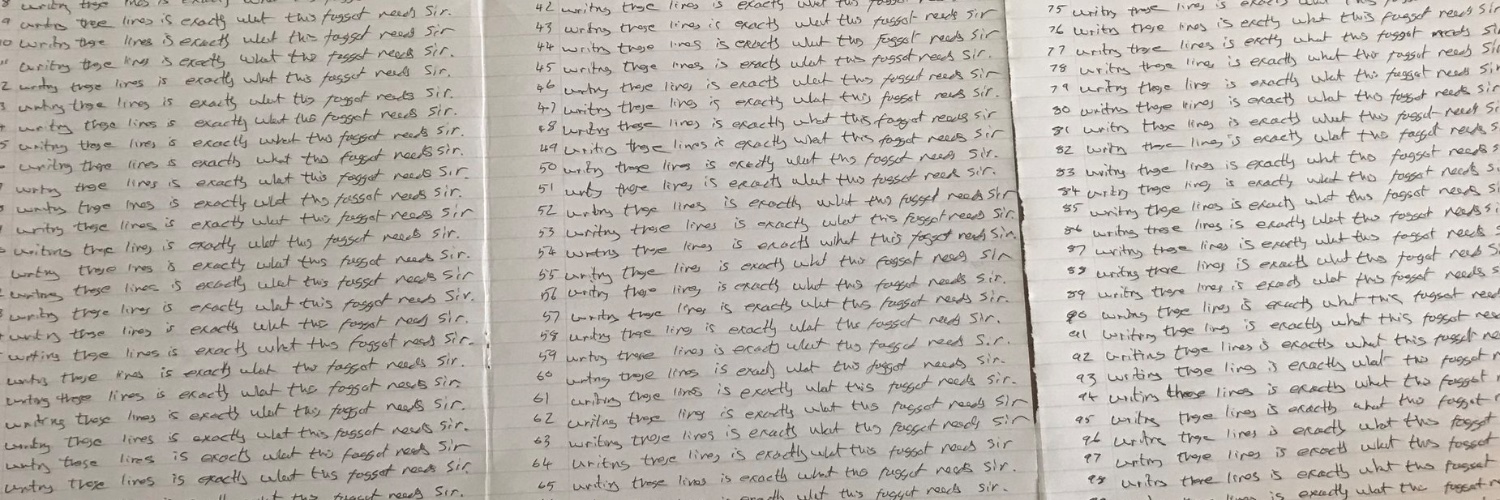 writing these lines is exactly what this faggot needs Sir.
9 writing these lines is exactly what this faggot needs Sir.
writing these lines is exactly what this faggot needs Sir
writing these lines is exactly what this faggot needs Sir.
writing these lines is exactly what this faggot needs Sir.
writing these lines is exactly what this faggot needs Sir.
writing these lines is exactly what this faggot needs Sir.
writing these lines is exactly what this faggot needs Sir.
writing these lines is exactly what this faggot needs Sir.
writing these lines is exactly what this faggot needs Sir.
writing these lines is exactly what this faggot needs Sir.
writing these lines is exactly what this faggot needs Sir
writing these lines is exactly what this faggot needs Sir.
writing these lines is exactly what this faggot needs Sir.
writing these lines is exactly what this faggot needs Sir
writing these lines is exactly what this faggot needs Sir.
writing these lines is exactly what this faggot needs Sir.
writing these lines is exactly what this faggot needs Sir.
writing these lines is exactly what this faggot needs Sir.
writing these lines is exactly what this faggot needs Sir.
writing these lines is exactly what this faggot needs Sir.
writing these lines is exactly what this faggot needs Sir.
writing these lines is exactly what this faggot needs Sir
writing these lines is exactly what this faggot needs Sir.
what this faggot needs Sir.
42 writing these lines is exactly what this faggot needs Sir
43 writing these lines is exactly what this faggot needs Sir
44 writing these lines is exactly what this faggot needs Sir
45 writing these lines is exactly what this faggot needs Sir
46 writing these lines is exactly what this faggot needs Sir
47 writing these lines is exactly what this faggot needs Sir
48 writing these lines is exactly what this faggot needs Sir
49 writing these lines is exactly what this faggot needs Sir
50 writing these lines is exactly what this faggot needs Sir.
51 writing these lines is exactly what this faggot needs Sir.
52 writing these lines is exactly what this faggot needs Sir
53 writing these lines is exactly what this faggot needs Sir
54 writing these lines is exactly what this faggot needs Sir.
55 writing these lines is exactly what this faggot needs Sir
56 writing these lines is exactly what this faggot needs Sir.
57 writing these lines is exactly what this faggot needs Sir.
58 writing these lines is exactly what this faggot needs Sir.
59 writing these lines is exactly what this faggot needs Sir.
60 writing these lines is exactly what this faggot needs Sir.
61 writing these lines is exactly what this faggot needs Sir.
62 writing these lines is exactly what this faggot needs Sir
63 writing these lines is exactly what this faggot needs Sir
64 writing these lines is exactly what this faggot needs Sir
65 writing these lines is exactly what this faggot needs Sir.
75 writing these lines is exactly what this faggot needs
76 writing these lines is exactly what this faggot needs
77 writing these lines is exactly what this faggot needs
78 writing these lines is exactly what this faggot needs
79 writing these lines is exactly what this faggot needs
80 writing these lines is exactly what this faggot needs
81 writing these lines is exactly what this faggot needs
82 writing these lines is exactly what this faggot needs
83 writing these lines is exactly what this faggot needs
84 writing these lines is exactly what this faggot needs
85 writing these lines is exactly what this faggot needs
86 writing these lines is exactly what this faggot needs
87 writing these lines is exactly what this faggot needs
88 writing these lines is exactly what this faggot needs
89 writing these lines is exactly what this faggot needs
90 writing these lines is exactly what this faggot needs
91 writing these lines is exactly what this faggot
92 writing these lines is exactly what this faggot
93 writing these lines is exactly what this faggot
94 writing these lines is exactly what this faggot
95 writing these lines is exactly what this faggot
96 writing these lines is exactly what this faggot
97 writing these lines is exactly what this faggot
98 writing these lines is exactly what this faggot